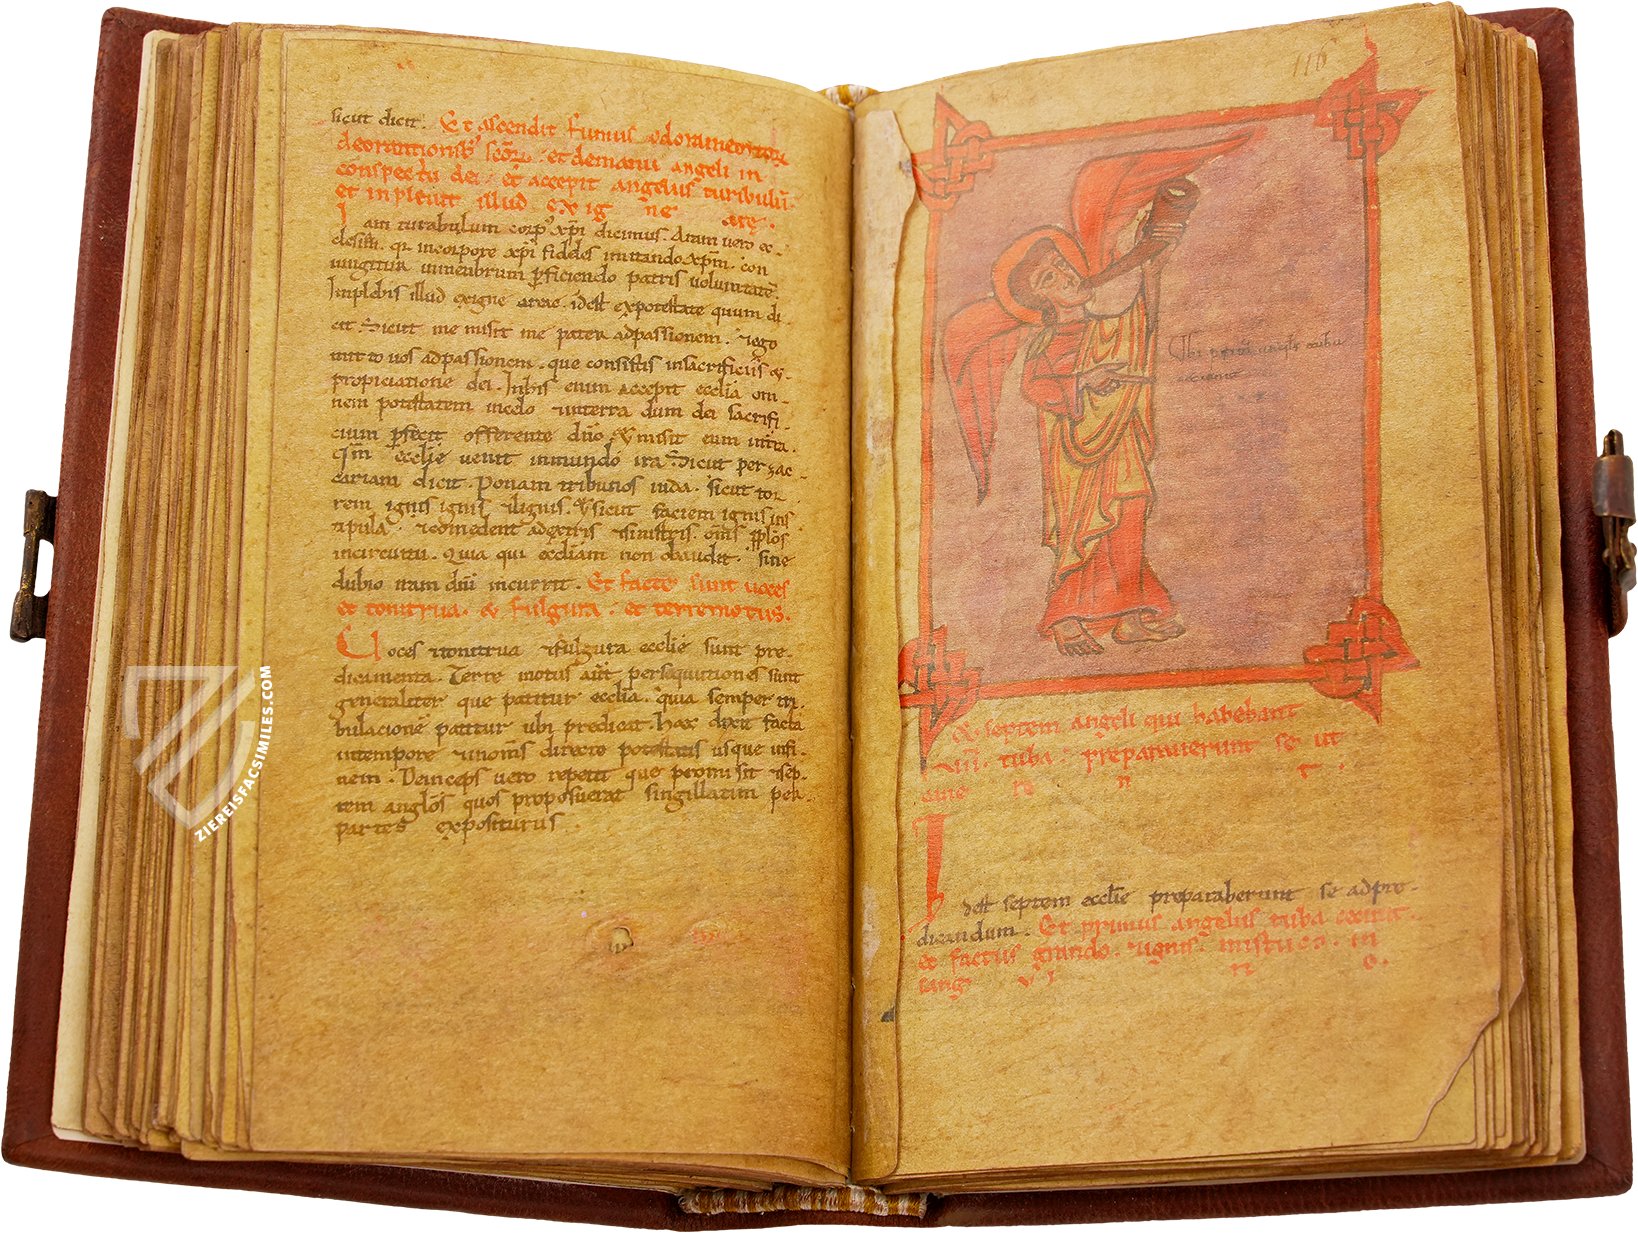 sicut dicit. Et ascendit fumus odoramentor
deorationib; scōr. et demanu angeli in
conspectu dei. et accepit angelus turibulū.
et inplevit illud ex ig ne are.
Iam turabulum corp' xp̄i dicimus. Aram vero ec-
clesiā. qr̄ incorpore xp̄i fideles imitando xp̄m. con
iungitur inmenbrum p̄ficiendo patris voluntatē.
Implebis illud exigne arae. idest expotestate quum di
cit. Sicut me misit me pater adpassionem. &ego
mitto vos adpassionem. que consistis insacrificiis &
propiciatione dei. Inhis enim accepit ecclīa om-
nem potestatem incelo &interra dum dei sacrifi-
cium p̄fecit offerente dn̄o. &misit eum interra.
Qm̄ ecclie venit inmundo ira. Sicut per zac-
cariam dicit. Ponam tribunos iuda. sicut tor-
rem ignis ignis &lignis. &sicut faciem ignis ins
tipula. &comedent adextris &sinistris. om̄s pp̄los
incircuitu. Quia qui eccliam non obaudit. sine
dubio iram dn̄i incurrit. Et facte sunt voces
et tonitrua. & fulgura. et terremotus.
Voces &tonitrua &fulgura ecclie sunt pre-
dicamenta. Terre motus aut̄ persequutiones sunt
generaliter que patitur ecclīa. quia semper tri
bulacionē patitur ubi predicat. Hax dixit facta
intempore &inom̄s directo potestatis usque infi-
nem. Deinceps vero repetit que promisit &sep-
tem anglos quos proposuerat singillatim per
partes expositurus.
116
Ubi primus angelus tuba
cecinit
& septem angeli qui habebant
.vii. tuba. preparaverunt se ut
cane re n t.
Idest septem ecclie preparaberunt se adpre-
dicandum. Et primus angelus tuba cecinit
et factus grando. &ignis. mistus. in
sang vi n o.
ZIEREISFACSIMILES.COM